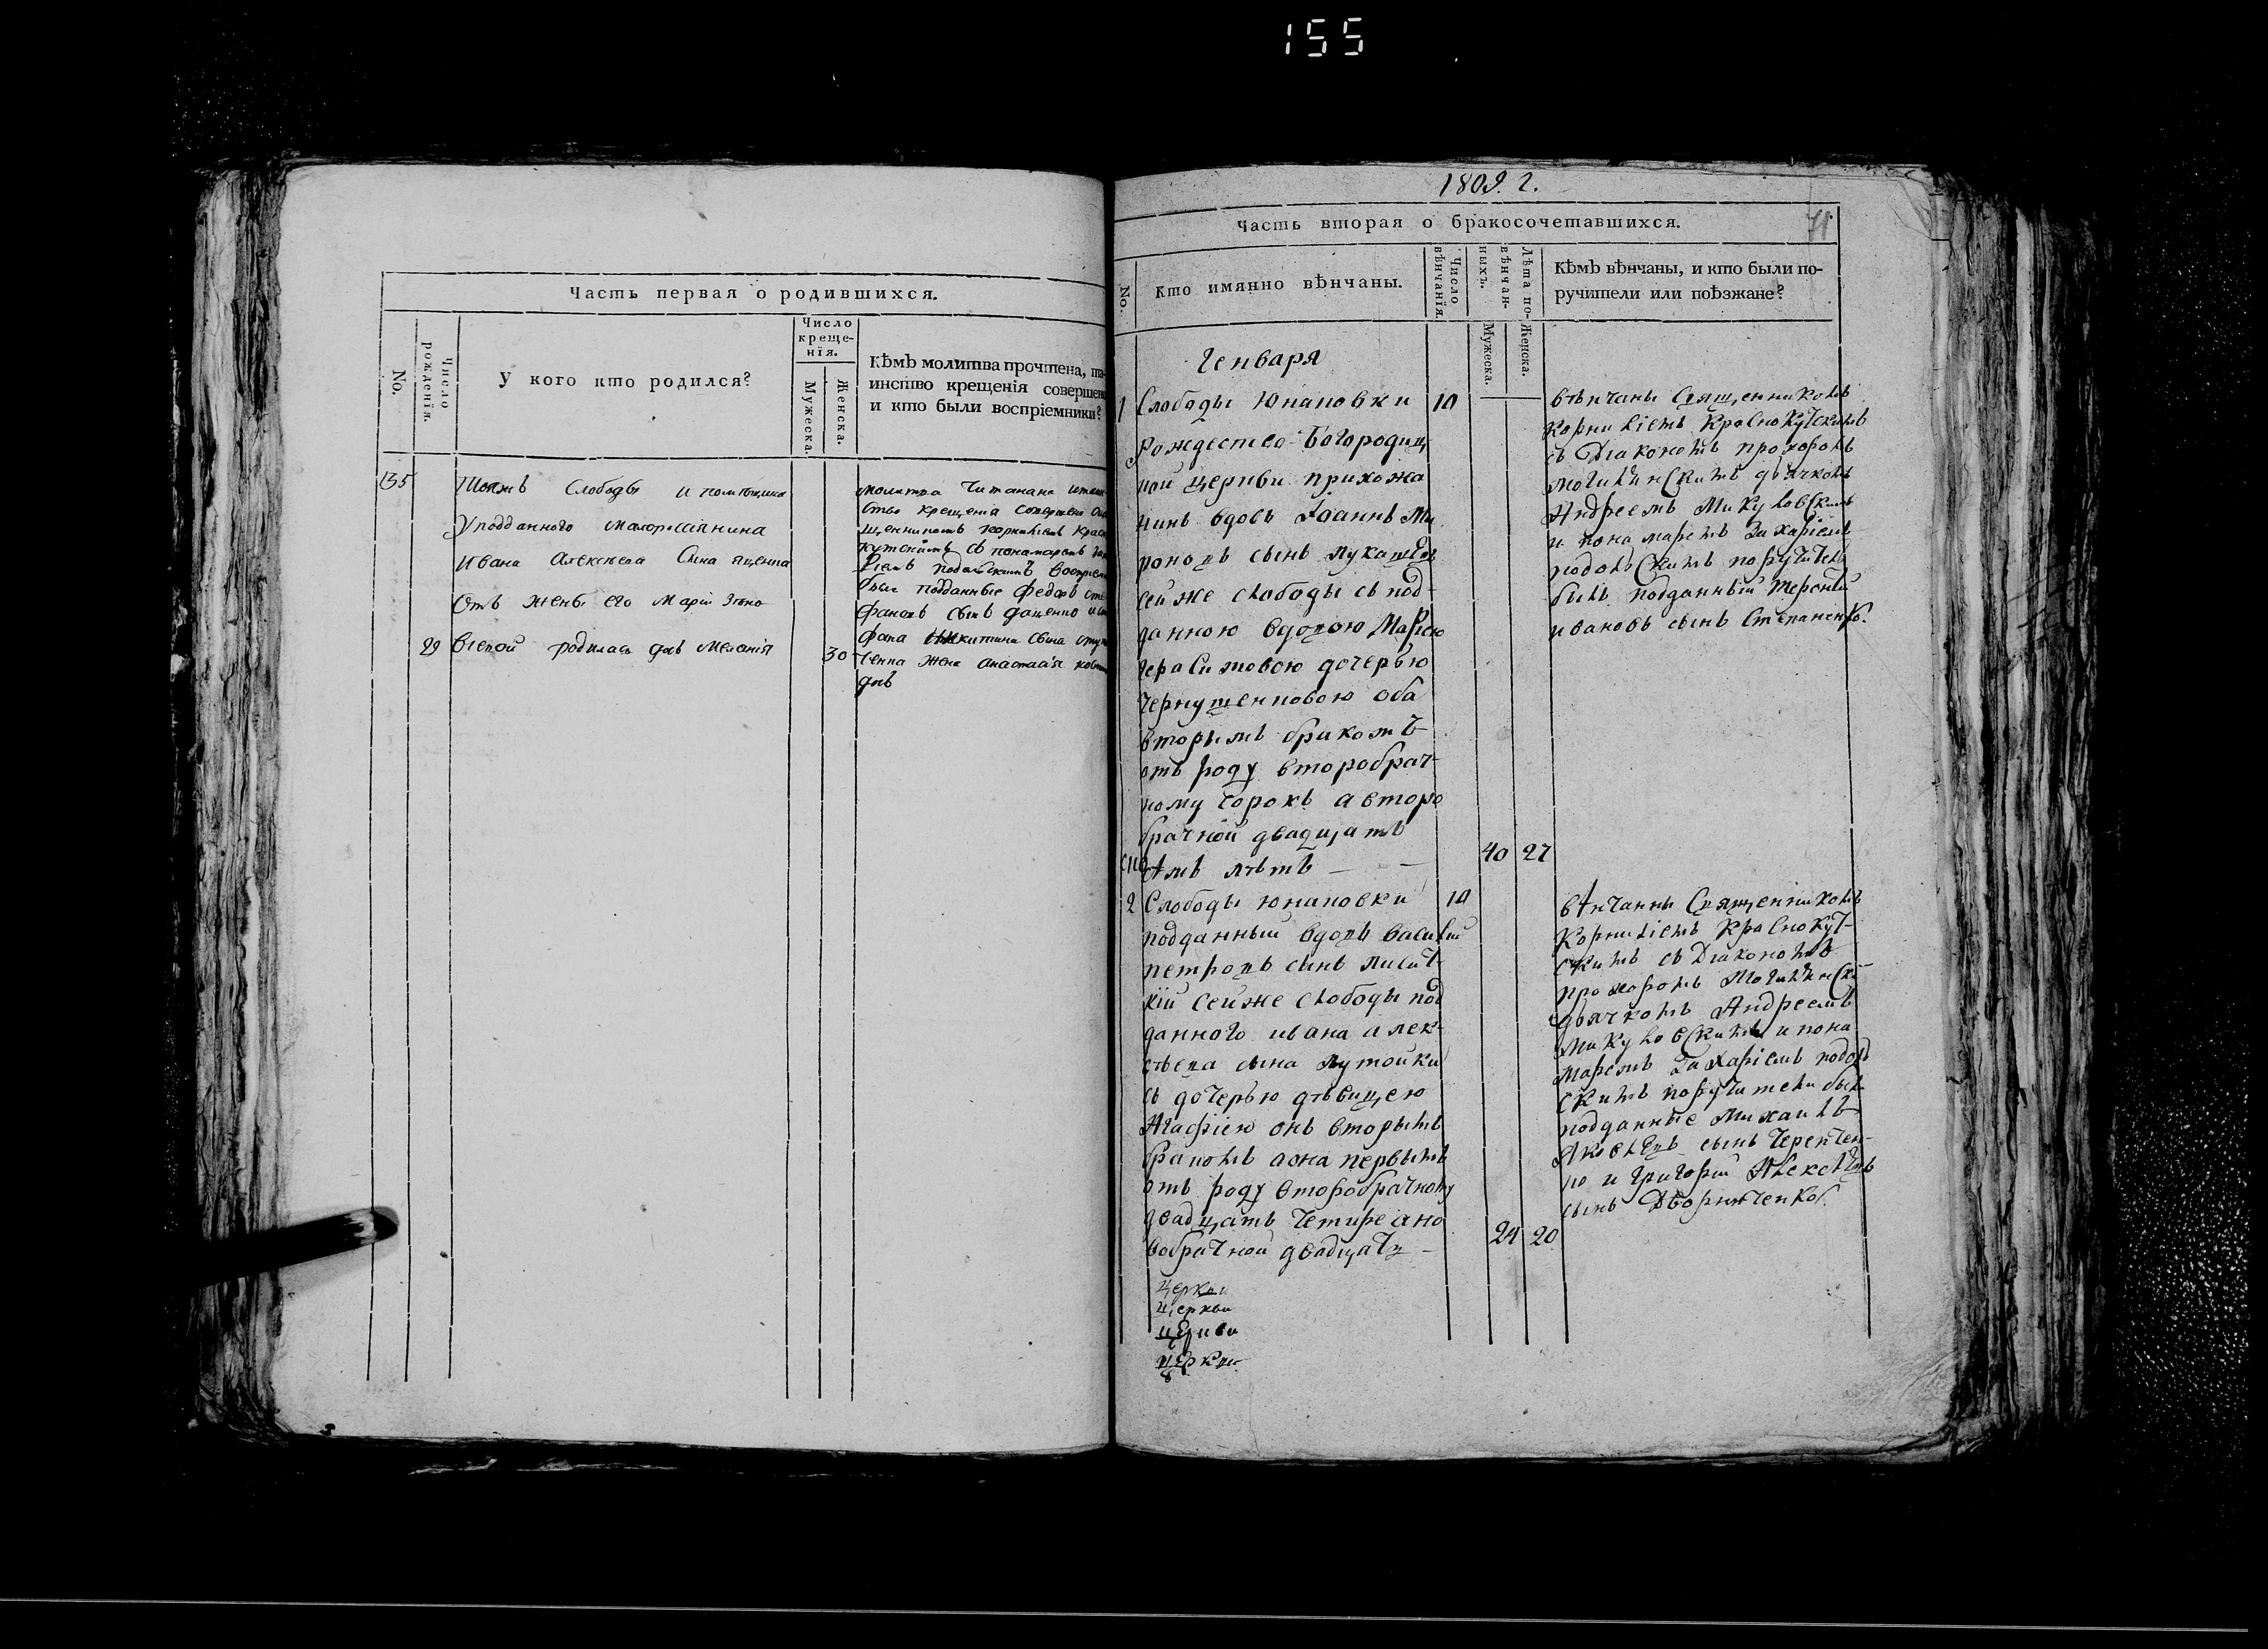 155
Часть первая о родившихся.
No.
Число рожденїя.
У кого кто родился?
Число крещенїя.
Мужеска.
Женска.
Кѣмъ молитва прочтена, та-
инство крещенїя совершен
и кто были воспрїемники?
135
Слободы и помещика
Уподданного малоросїянина
Ивана Алексѣева Сына яценка
Отъ жены его Марїи Зѣно
29 Вїевой родилась дчь Меланїя 30
молитва Читанана
ство крещенїя Совершен
щенникомъ корнилїемъ Крас
кутскимъ съ понамаремъ
рїемъ подольскимъ Воспрїем
были подданные федоръ сте
фановъ сынъ
фана никитина сына
ченка жена анастасїя
дчь
1809. г.
71
Часть вторая о бракосочетавшихся.
No.
Кто имянно вѣнчаны.
Число вѣнчанїя.
Лѣта по-
вѣнчан-
ныхъ.
Мужеска.
Женска.
Кѣмъ вѣнчаны, и кто были по-
ручители или поѣзжане?
Генваря
1 Слободы Юнаковки 10
Рождество-Богородиц
кой церкви прихожа
нинъ вдовъ Іоаннъ Ми
роновъ сынъ лукашовъ
сей же слободы съ под-
данною вдовою Марїею
герасимовою дочерью
чернушенковою оба
вторымъ бракомъ
отъ роду второбрач-
ному сорокъ а второ
брачной двадцать
семъ лѣтъ — — 40 27
вѣнчаны Священникомъ
корнилїемъ Краснокутскимъ
съ Дїакономъ прохоромъ
могилянскимъ дьячкомъ
Андреемъ Микуловскимъ
и понамаремъ Захарїемъ
подольскимъ поручитель
былъ подданный терентїй
ивановъ сынъ Степаненко.
2 Слободы юнаковки 10
подданный вдовъ василїй
петровъ сынъ лисит-
кїй сей же слободы под
данного ивана алек-
сѣева сына лутойки
съ дочерью дѣвицею
Агафїею онъ вторымъ
бракомъ а она первымъ
отъ роду второбрачному
двадцать четыре а но
вобрачной двадцать – 24 20
вѣнчанны Священникомъ
корнилїемъ Краснокут-
скимъ съ Дїакономъ
прохоромъ Могилянски
дьячкомъ Андреемъ
микуловскимъ и пона
маремъ Захарїемъ подол
скимъ поручители были
подданные михаилъ
Яковлевъ сынъ черепчен-
ко и григорїй Алексѣевъ
сынъ Дворниченко.
церкви
церкви
церкви
церкви